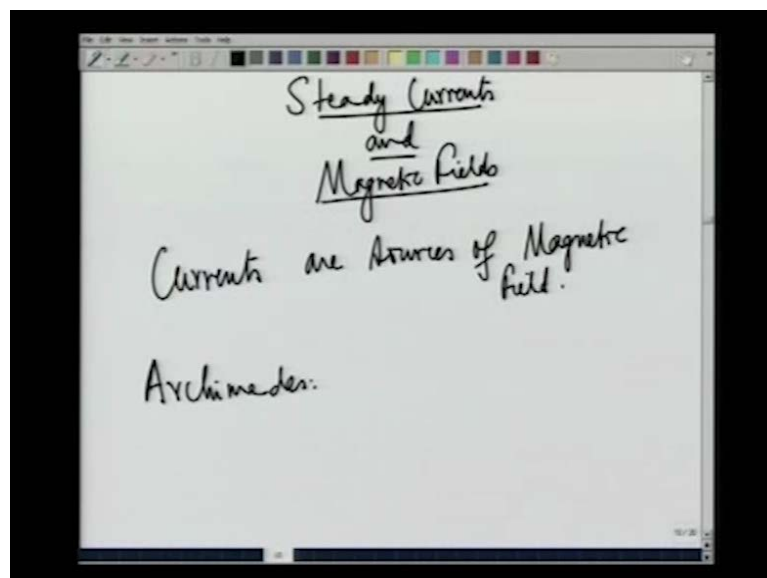 File Edit View Insert Actions Tools Help
Steady Currents
and
Magnetic Fields
Currents are sources of Magnetic
field.
Archimedes:
10/20